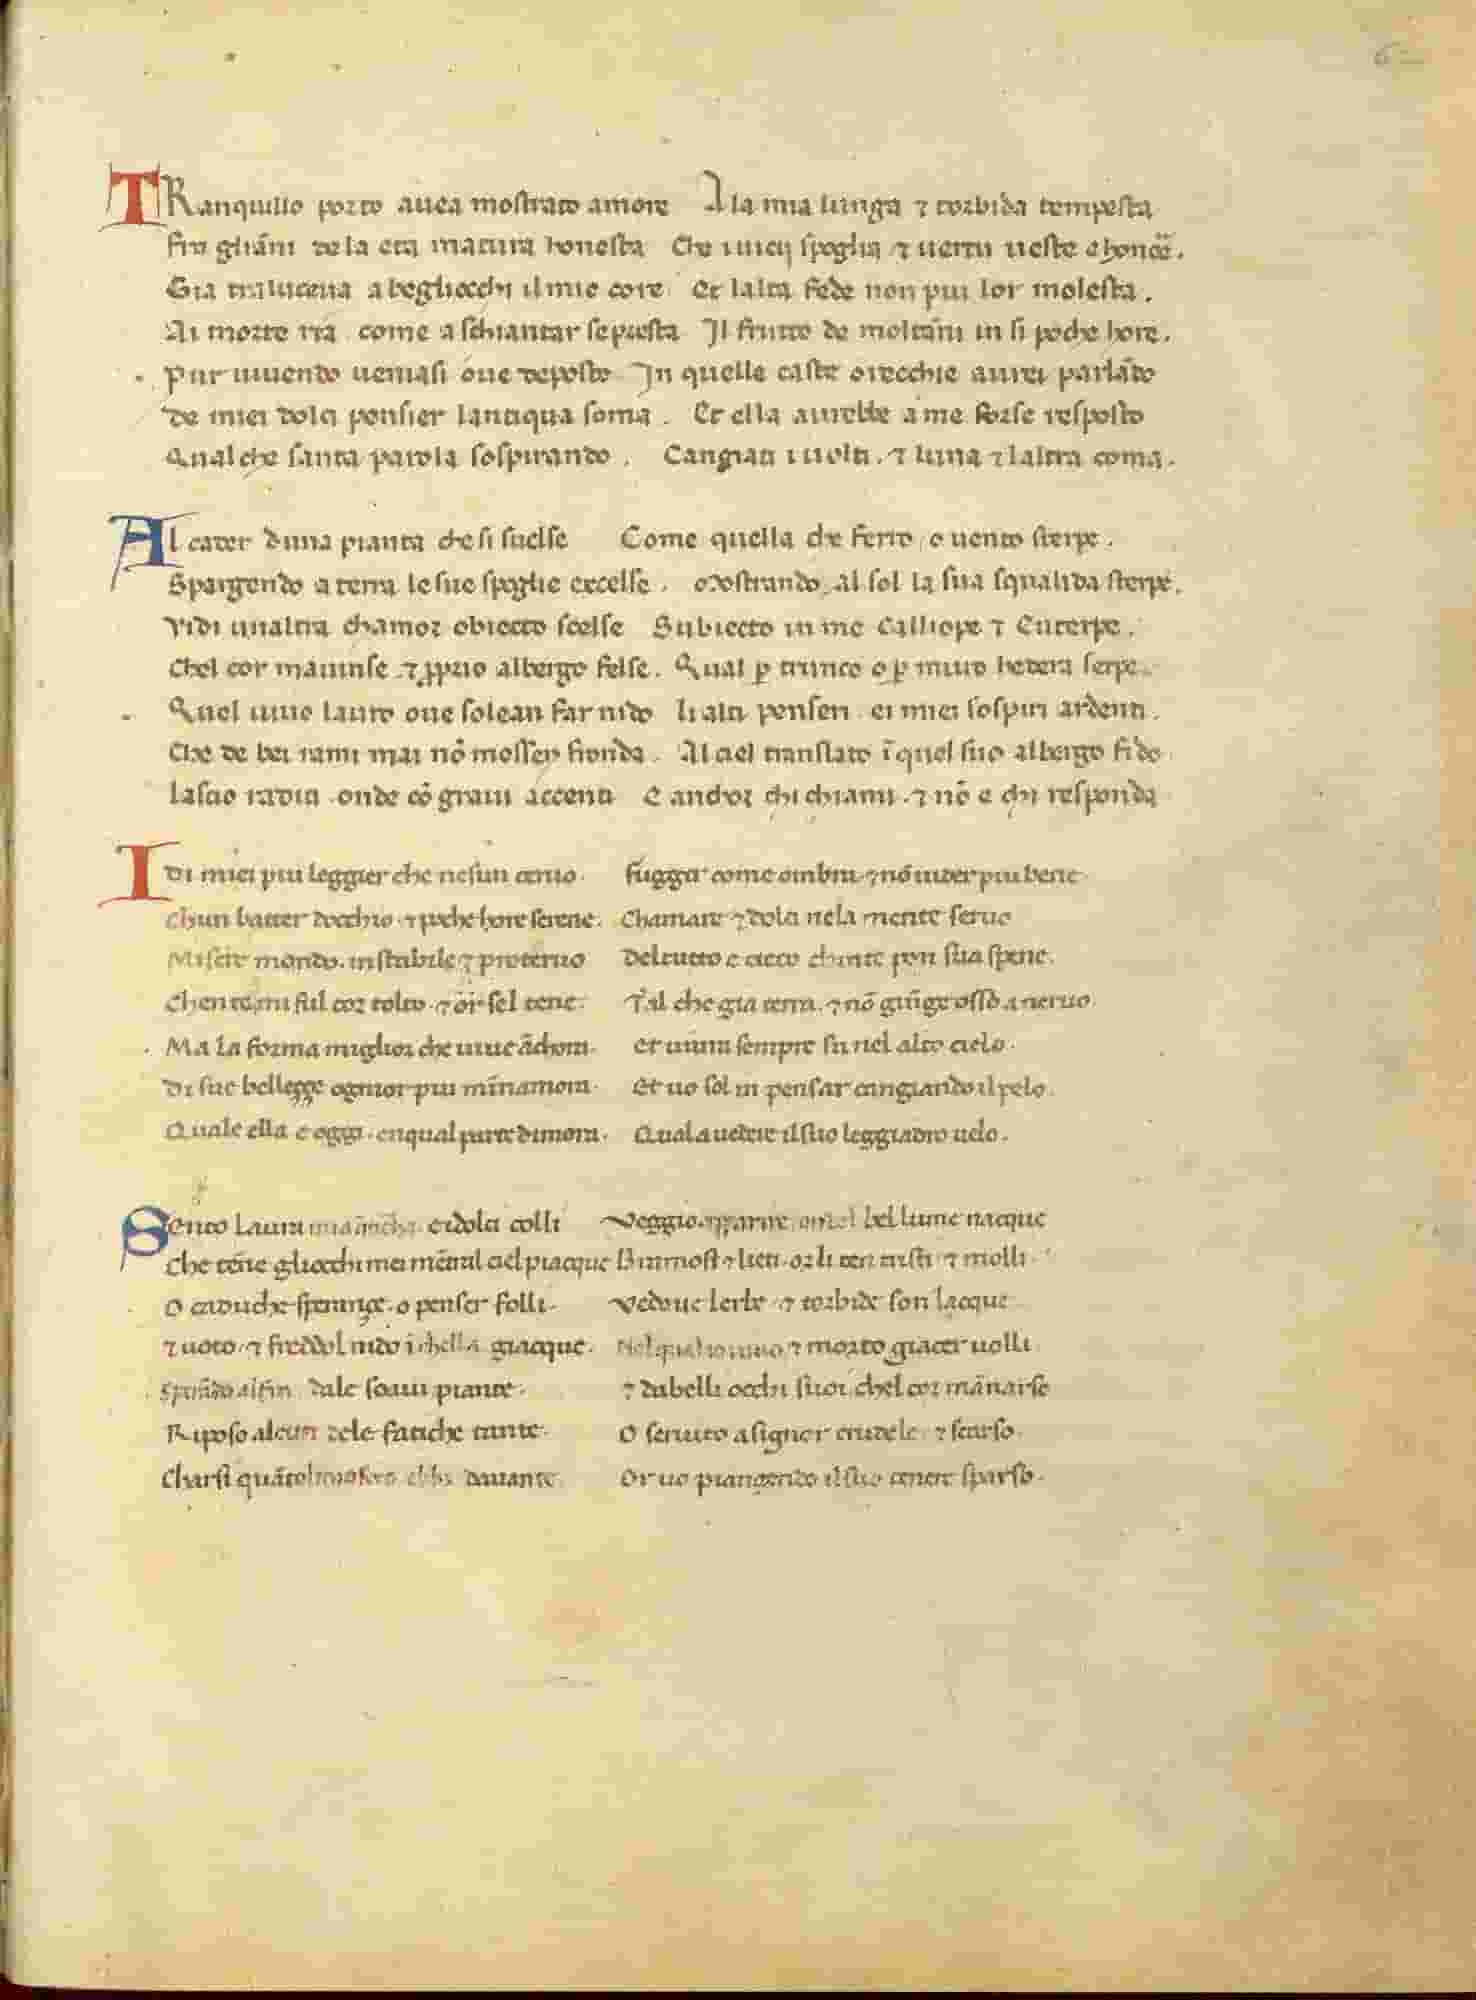 6
TRanquillo porto auea mostrato amore Ala mia lunga ⁊ torbida tempesta
fra gliãni de la eta matura honesta Che i uicij spoglia ⁊ uertu ueste e honore.
Gia traluceua a begliocchi il mio core Et lalta fede non piu lor molesta.
Ai morte ria come a schiantar se presta Il frutto de moltãni in si poche hore.
Pur uiuendo ueniasi oue deposto In quelle caste orecchie aurei parlãdo
De miei dolci pensier lantiqua soma. Et ella aurebbe a me forse resposto
Qualche santa parola sospirando. Cangiati i uolti. ⁊ luna ⁊ laltra coma.
Al cader duna pianta che si suelse Come quella che ferro o uento sterpe.
Spargendo a terra le sue spoglie excelse. Mostrando al sol la sua squalida sterpe.
Vidi unaltra chamor obiecto scelse Subiecto in me Calliope ⁊ Euterpe.
Chel cor mauinse. ⁊ ꝓprio albergo felse. Qual ꝑ trunco o ꝑ muro hedera serpe.
Quel uiuo lauro oue solean far nido li alti penseri. ei miei sospiri ardenti.
Che de bei rami mai nõ mossen fronda. Al ciel translato ĩ quel suo albergo fido
lascio radici. onde cõ graui accenti E anchor chi chiami. ⁊ nõ e chi responda
I Di miei piu leggier che nesun ceruo. fuggir come ombra. ⁊ nõ uider piu bene
Chun batter docchio. ⁊ poche hore serene. Chamare ⁊ dolci ne la mente seruo
Misero mondo. instabile ⁊ proteruo Del tutto e cieco chi nte pon sua spene.
Chen te mi ful cor tolto. ⁊ or sel tene. Tal che gia terra. ⁊ nõ giũge osso a neruo
Ma la forma miglior che uiue ãchora. Et uiura sempre su nel alto cielo.
Di sue bellezze ognior piu mĩnamora. Et uo sol in pensar cangiando il pelo.
Quale ella e oggi. en qual parte dimora. Qual a uedere il suo leggiadro uelo.
Sento laura mia ãticha. ei dolci colli Veggio apparire. onde il bel lume nacque
Che tẽne gliocchi mei mẽtral ciel piacque Bramosi ⁊ lieti. or li ten tristi ⁊ molli.
O caduche speranze. o penser folli. Vedoue lerbe ⁊ torbide son lacque
⁊ uoto. ⁊ freddol nido i chella giacque. Nel qual io uiuo ⁊ morto giacer uolli
Sperãdo al fin dale soaui piante. ⁊ dabelli occhi suoi chel cor mãnarse
Riposo alcun dele fatiche tante. O seruito a signor crudele ⁊ scarso.
Charsi quãtol mio foco ebbi dauante. Or uo piangendo il suo cenere sparso.